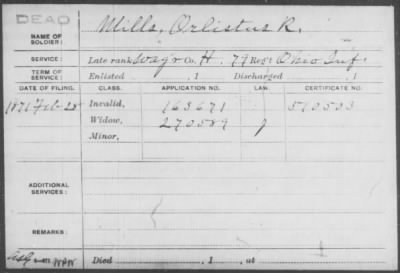 DEAD
NAME OF SOLDIER: Mills, Orlistus R.
SERVICE: Late rank Wag'r Co. H. 79 Reg't Ohio Inf.
TERM OF SERVICE: Enlisted , 1 Discharged , 1
DATE OF FILING. CLASS. APPLICATION NO. LAW. CERTIFICATE NO.
Invalid, 163671 510503
Widow, 270589
Minor,
ADDITIONAL SERVICES:
REMARKS:
Died , 1 , at